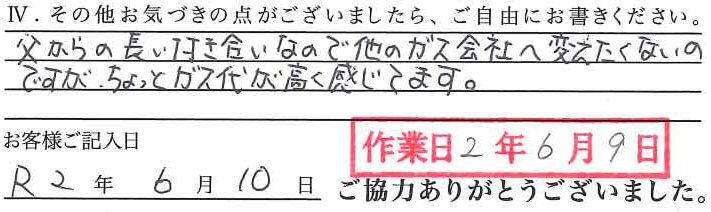 Ⅳ．その他お気づきの点がございましたら、ご自由にお書きください。
父からの長い付き合いなので他のガス会社へ変えたくないの
ですが、ちょっとガス代が高く感じてます。
お客様ご記入日
作業日2年6月9日
R2年 6月10日 ご協力ありがとうございました。